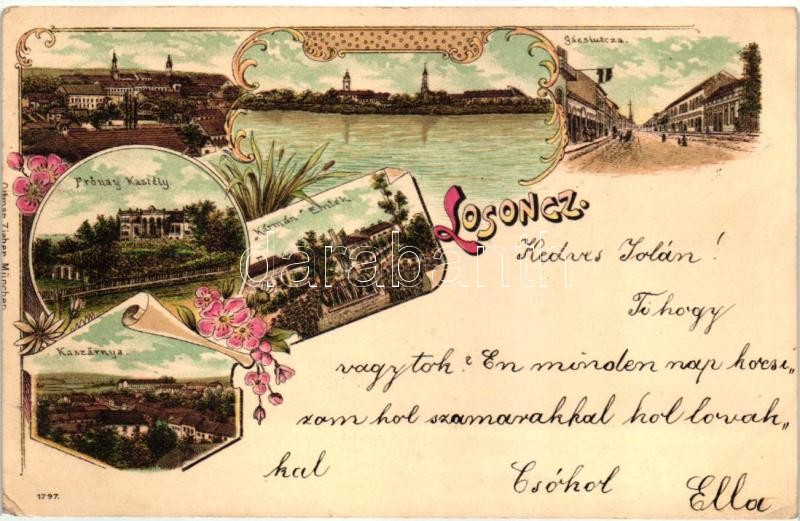 Gácsiutcza.
Prónay Kastély.
"Kármán" Emlék.
Losoncz.
Kaszárnya.
Ottmar Zieher, München
1797.
darabanth
Kedves Jolán!
Ti hogy
vagytok? En minden nap kocsi„
zom hol szamarakkal hol lovak„
kal
Csókol Ella